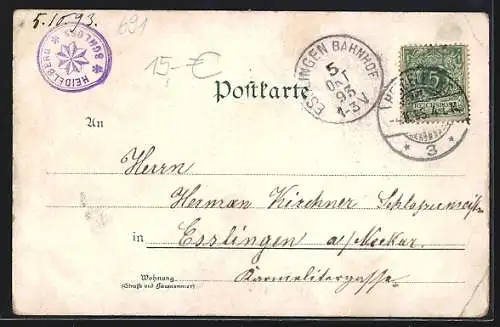 5.10.93.
691
HEIDELBERG SCHLOSS
15-€
Postkarte
ESSLINGEN BAHNHOF
5
OCT
93
1-3 V
5
3
An
Herrn
Herman Kirchner
in Esslingen a/Neckar.
Wohnung
(Straße und Hausnummer)
Karmelitergasse